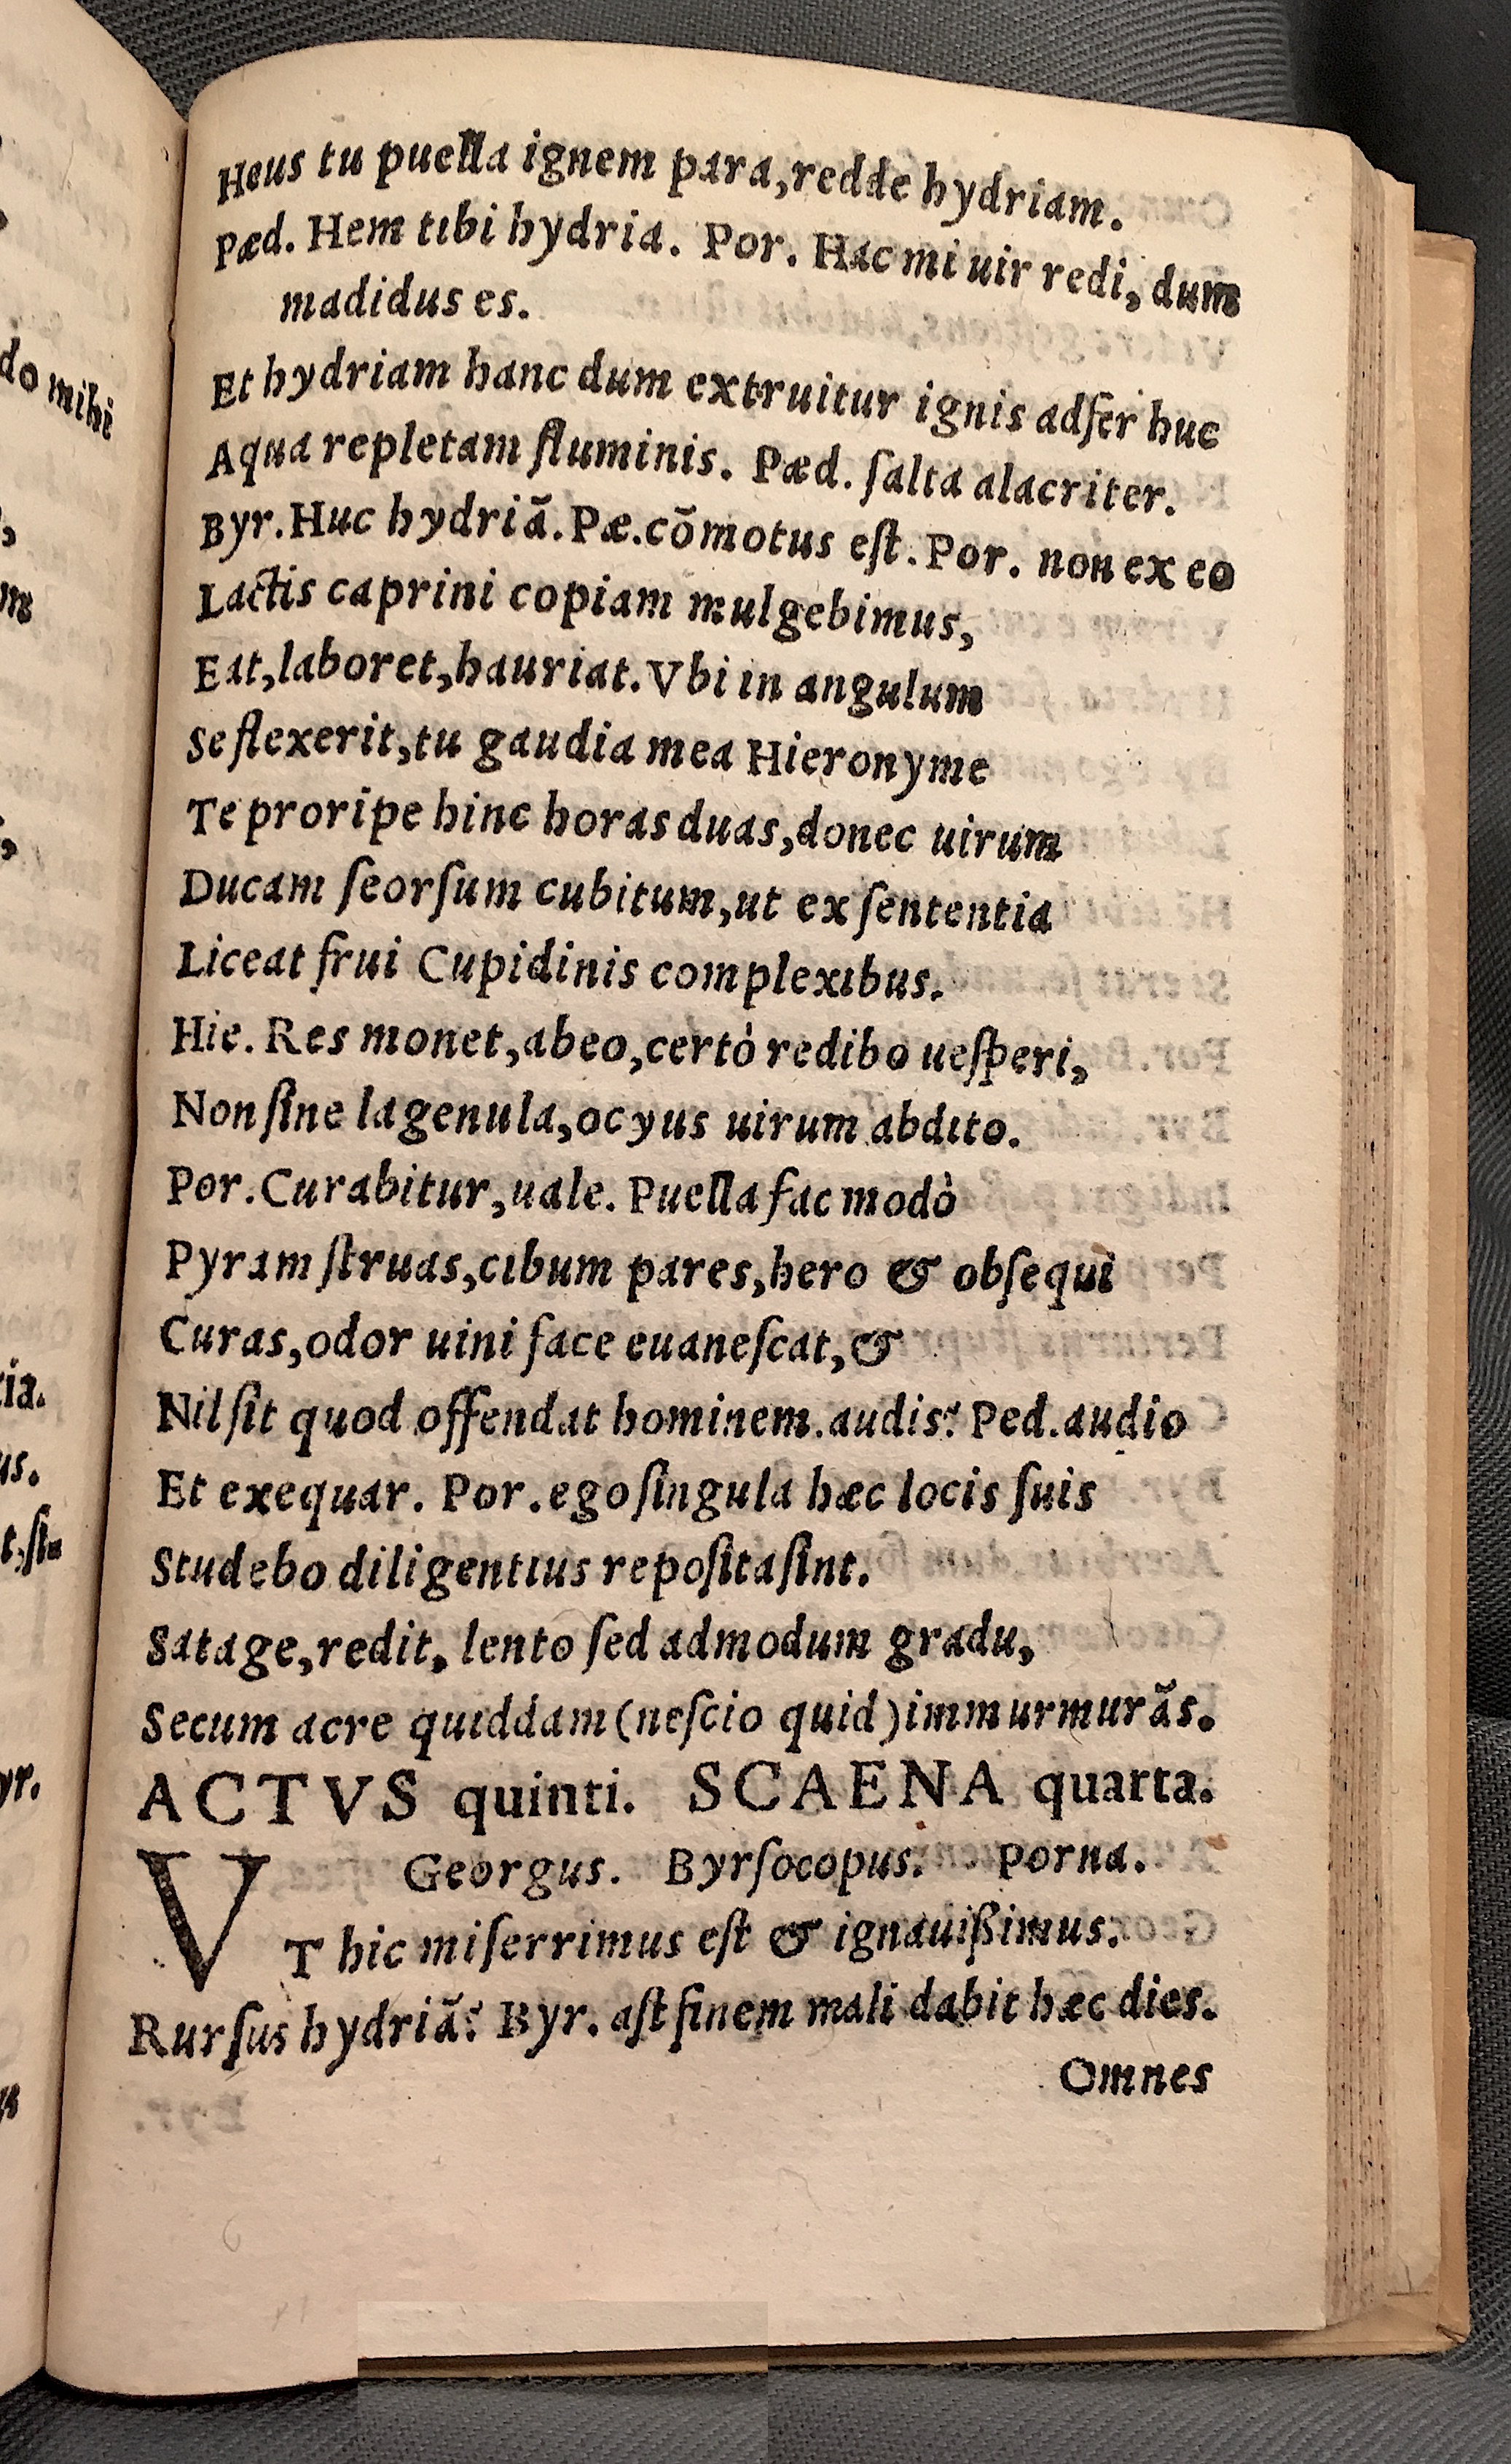 Heus tu puella ignem para, redde hydriam.
Pæd. Hem tibi hydria. Por. Hac mi uir redi, dum
madidus es.
Et hydriam hanc dum extruitur ignis adfer huc
Aqua repletam fluminis. Pæd. ſalta alacriter.
Byr. Huc hydriã. Pæ. cõmotus eſt. Por. non ex eo
Lactis caprini copiam mulgebimus,
Eat, laboret, hauriat. Vbi in angulum
Se flexerit, tu gaudia mea Hieronyme
Te proripe hinc horas duas, donec uirum
Ducam ſeorſum cubitum, ut ex ſententia
Liceat frui Cupidinis complexibus.
Hie. Res monet, abeo, certò redibo ueſperi,
Non ſine lagenula, ocyus uirum abdito.
Por. Curabitur, uale. Puella fac modò
Pyram ſtruas, cibum pares, hero & obſequi
Curas, odor uini face euaneſcat, &
Nil ſit quod offendat hominem. audis? Ped. audio
Et exequar. Por. ego ſingula hæc locis ſuis
Studebo diligentius repoſita ſint.
Satage, redit, lento ſed admodum gradu,
Secum acre quiddam (neſcio quid) immurmurãs.
ACTVS quinti. SCAENA quarta.
Georgus. Byrſocopus. Porna.
VT hic miſerrimus eſt & ignauißimus.
Rurſus hydriã? Byr. aſt finem mali dabit hæc dies.
Omnes
do mihi
ria.
us.
yr.